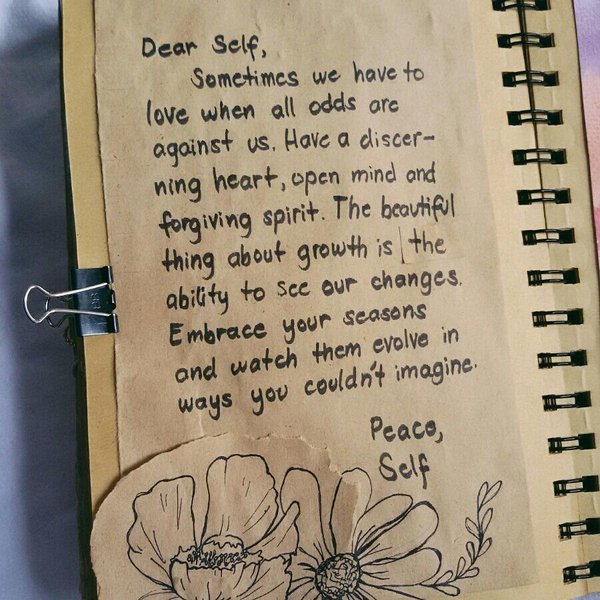 Dear Self,
Sometimes we have to
love when all odds are
against us. Have a discer-
ning heart, open mind and
forgiving spirit. The beautiful
thing about growth is the
ability to see our changes.
Embrace your seasons
and watch them evolve in
ways you couldn't imagine.
Peace,
Self